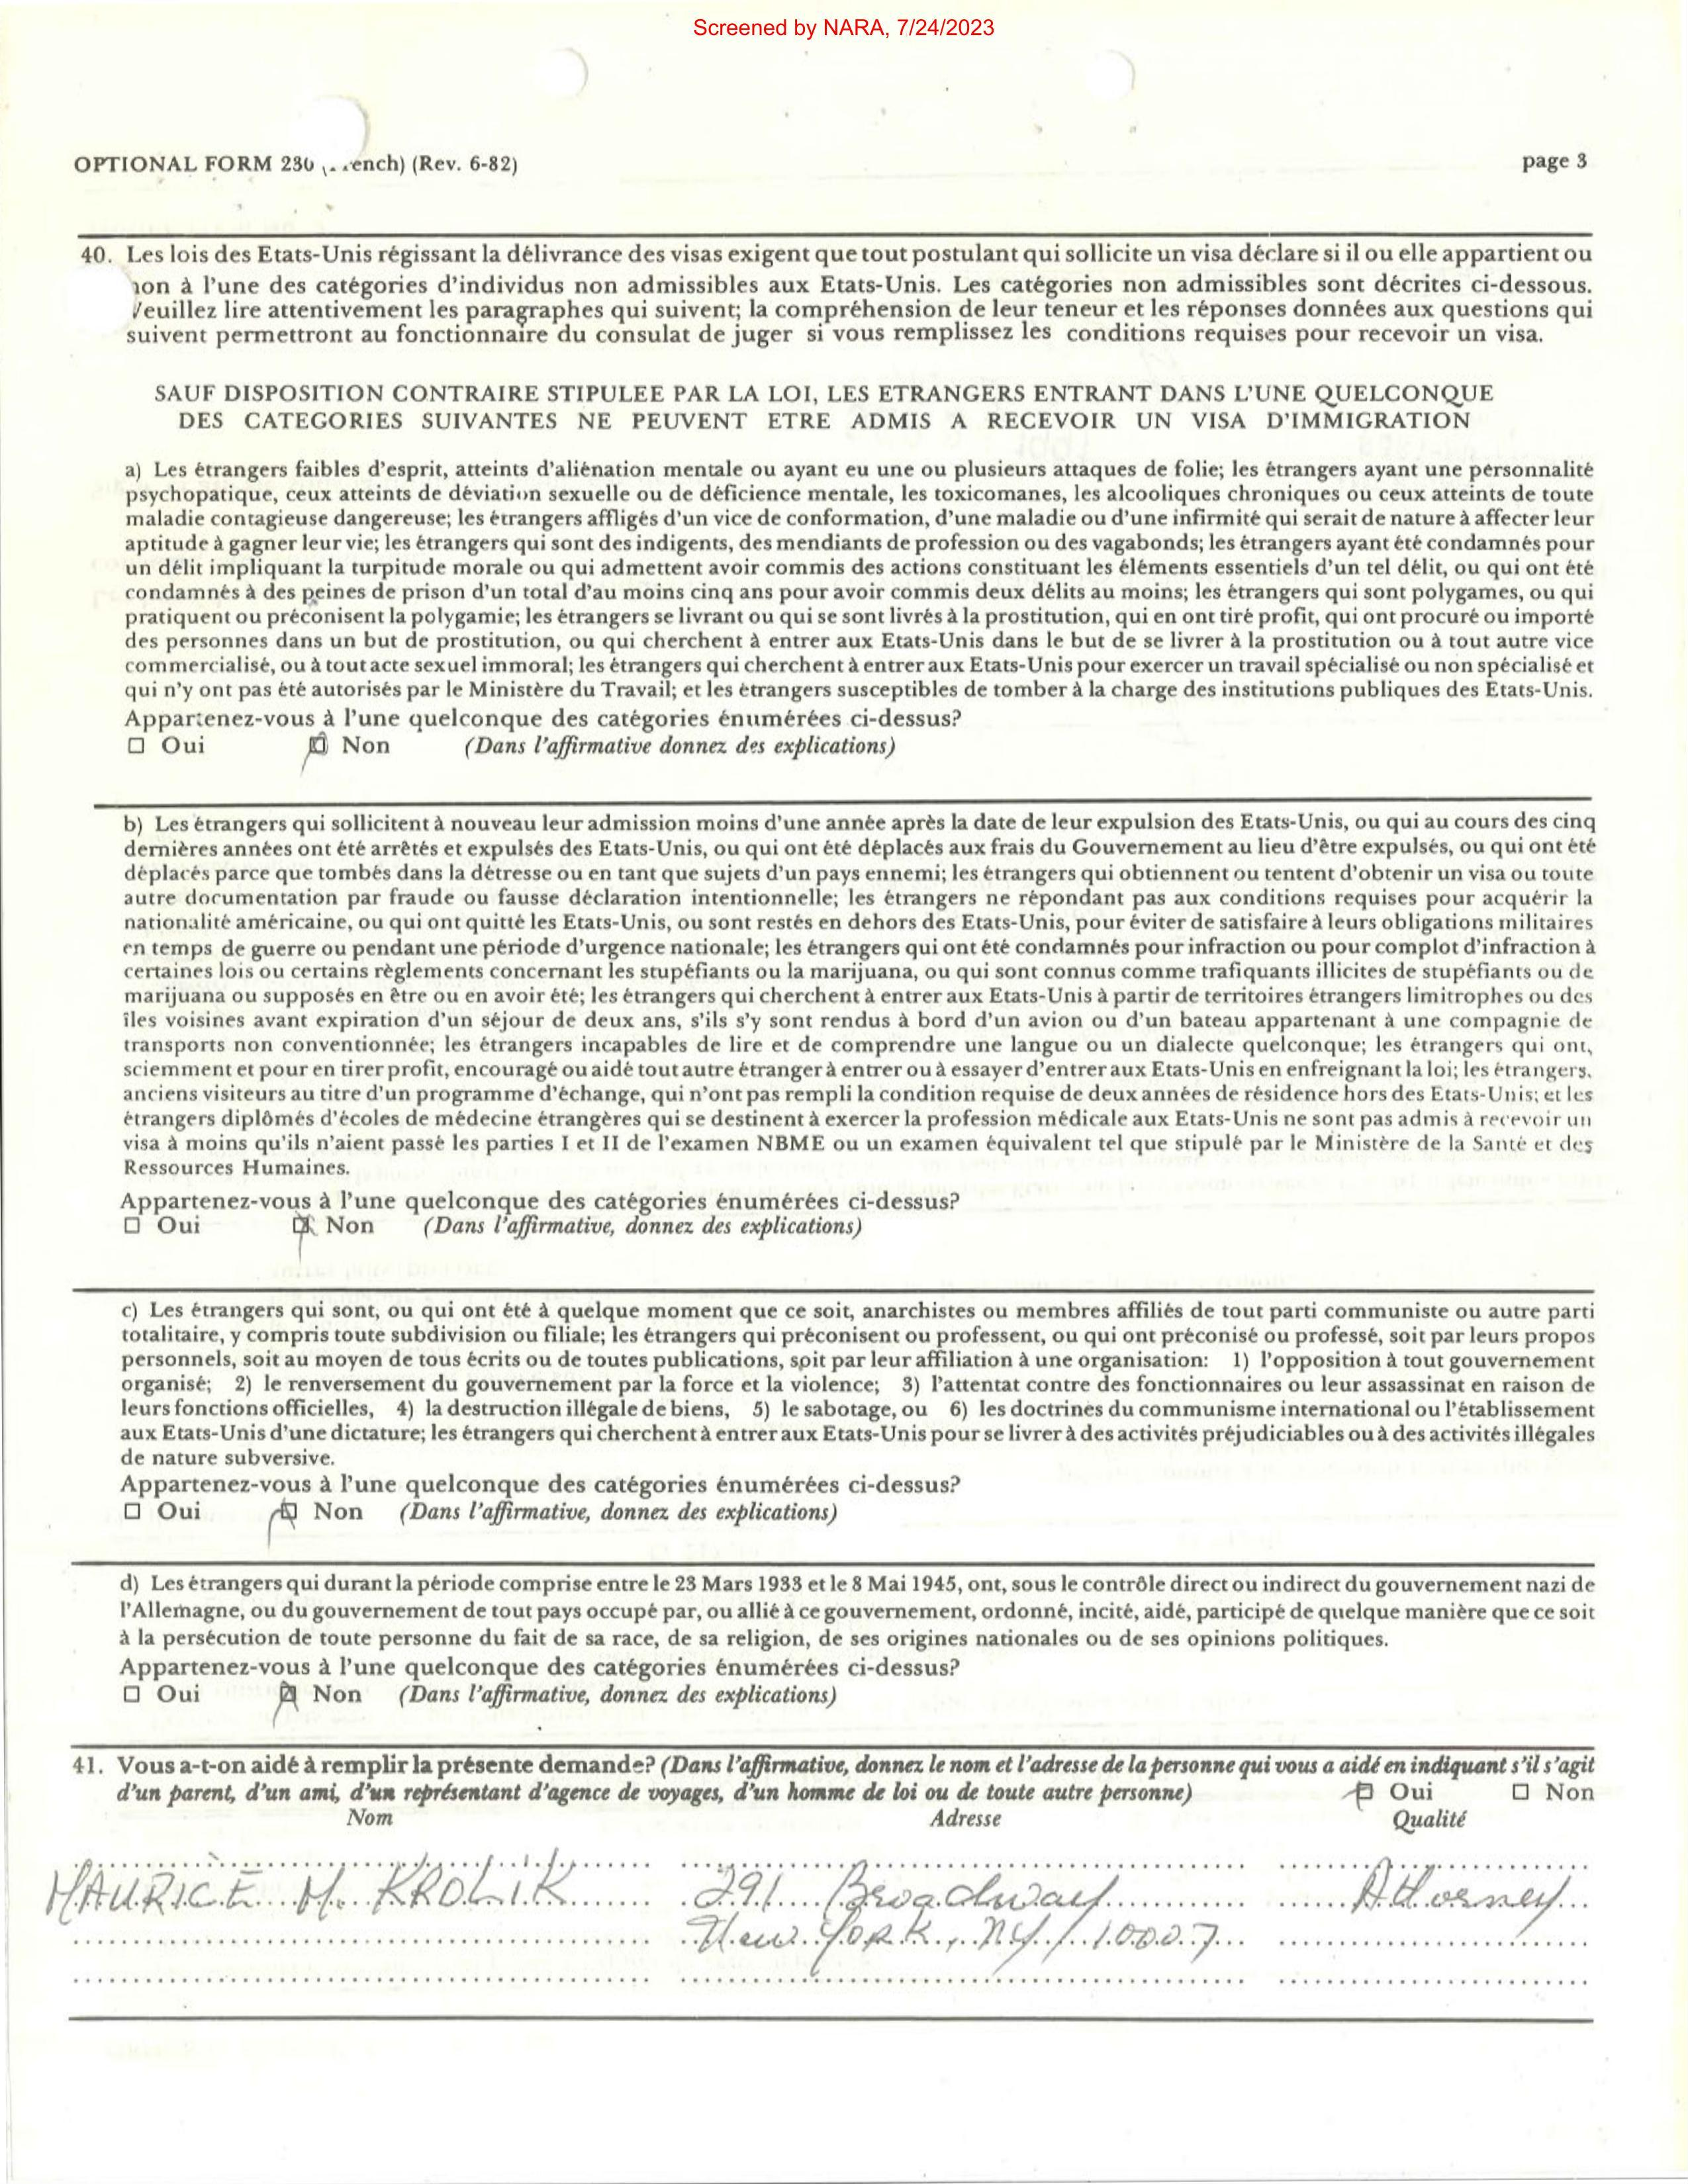 Screened by NARA, 7/24/2023
OPTIONAL FORM 230 ench) (Rev. 6-82)
page 3
40. Les lois des Etats-Unis régissant la délivrance des visas exigent que tout postulant qui sollicite un visa déclare si il ou elle appartient ou
non à l'une des catégories d'individus non admissibles aux Etats-Unis. Les catégories non admissibles sont décrites ci-dessous.
Veuillez lire attentivement les paragraphes qui suivent; la compréhension de leur teneur et les réponses données aux questions qui
suivent permettront au fonctionnaire du consulat de juger si vous remplissez les conditions requises pour recevoir un visa.
SAUF DISPOSITION CONTRAIRE STIPULEE PAR LA LOI, LES ETRANGERS ENTRANT DANS L'UNE QUELCONQUE
DES CATEGORIES SUIVANTES NE PEUVENT ETRE ADMIS A RECEVOIR UN VISA D'IMMIGRATION
a) Les étrangers faibles d'esprit, atteints d'aliénation mentale ou ayant eu une ou plusieurs attaques de folie; les étrangers ayant une personnalité
psychopatique, ceux atteints de déviation sexuelle ou de déficience mentale, les toxicomanes, les alcooliques chroniques ou ceux atteints de toute
maladie contagieuse dangereuse; les étrangers affligés d'un vice de conformation, d'une maladie ou d'une infirmité qui serait de nature à affecter leur
aptitude à gagner leur vie; les étrangers qui sont des indigents, des mendiants de profession ou des vagabonds; les étrangers ayant été condamnés pour
un délit impliquant la turpitude morale ou qui admettent avoir commis des actions constituant les éléments essentiels d'un tel délit, ou qui ont été
condamnés à des peines de prison d'un total d'au moins cinq ans pour avoir commis deux délits au moins; les étrangers qui sont polygames, ou qui
pratiquent ou préconisent la polygamie; les étrangers se livrant ou qui se sont livrés à la prostitution, qui en ont tiré profit, qui ont procuré ou importé
des personnes dans un but de prostitution, ou qui cherchent à entrer aux Etats-Unis dans le but de se livrer à la prostitution ou à tout autre vice
commercialisé, ou à tout acte sexuel immoral; les étrangers qui cherchent à entrer aux Etats-Unis pour exercer un travail spécialisé ou non spécialisé et
qui n'y ont pas été autorisés par le Ministère du Travail; et les étrangers susceptibles de tomber à la charge des institutions publiques des Etats-Unis.
Appartenez-vous à l'une quelconque des catégories énumérées ci-dessus?
☐ Oui ☒ Non (Dans l'affirmative donnez des explications)
b) Les étrangers qui sollicitent à nouveau leur admission moins d'une année après la date de leur expulsion des Etats-Unis, ou qui au cours des cinq
dernières années ont été arrêtés et expulsés des Etats-Unis, ou qui ont été déplacés aux frais du Gouvernement au lieu d'être expulsés, ou qui ont été
déplacés parce que tombés dans la détresse ou en tant que sujets d'un pays ennemi; les étrangers qui obtiennent ou tentent d'obtenir un visa ou toute
autre documentation par fraude ou fausse déclaration intentionnelle; les étrangers ne répondant pas aux conditions requises pour acquérir la
nationalité américaine, ou qui ont quitté les Etats-Unis, ou sont restés en dehors des Etats-Unis, pour éviter de satisfaire à leurs obligations militaires
en temps de guerre ou pendant une période d'urgence nationale; les étrangers qui ont été condamnés pour infraction ou pour complot d'infraction à
certaines lois ou certains règlements concernant les stupéfiants ou la marijuana, ou qui sont connus comme trafiquants illicites de stupéfiants ou de
marijuana ou supposés en être ou en avoir été; les étrangers qui cherchent à entrer aux Etats-Unis à partir de territoires étrangers limitrophes ou des
îles voisines avant expiration d'un séjour de deux ans, s'ils s'y sont rendus à bord d'un avion ou d'un bateau appartenant à une compagnie de
transports non conventionnée; les étrangers incapables de lire et de comprendre une langue ou un dialecte quelconque; les étrangers qui ont,
sciemment et pour en tirer profit, encouragé ou aidé tout autre étranger à entrer ou à essayer d'entrer aux Etats-Unis en enfreignant la loi; les étrangers,
anciens visiteurs au titre d'un programme d'échange, qui n'ont pas rempli la condition requise de deux années de résidence hors des Etats-Unis; et les
étrangers diplômés d'écoles de médecine étrangères qui se destinent à exercer la profession médicale aux Etats-Unis ne sont pas admis à recevoir un
visa à moins qu'ils n'aient passé les parties I et II de l'examen NBME ou un examen équivalent tel que stipulé par le Ministère de la Santé et des
Ressources Humaines.
Appartenez-vous à l'une quelconque des catégories énumérées ci-dessus?
☐ Oui ☒ Non (Dans l'affirmative, donnez des explications)
c) Les étrangers qui sont, ou qui ont été à quelque moment que ce soit, anarchistes ou membres affiliés de tout parti communiste ou autre parti
totalitaire, y compris toute subdivision ou filiale; les étrangers qui préconisent ou professent, ou qui ont préconisé ou professé, soit par leurs propos
personnels, soit au moyen de tous écrits ou de toutes publications, soit par leur affiliation à une organisation: 1) l'opposition à tout gouvernement
organisé; 2) le renversement du gouvernement par la force et la violence; 3) l'attentat contre des fonctionnaires ou leur assassinat en raison de
leurs fonctions officielles, 4) la destruction illégale de biens, 5) le sabotage, ou 6) les doctrines du communisme international ou l'établissement
aux Etats-Unis d'une dictature; les étrangers qui cherchent à entrer aux Etats-Unis pour se livrer à des activités préjudiciables ou à des activités illégales
de nature subversive.
Appartenez-vous à l'une quelconque des catégories énumérées ci-dessus?
☐ Oui ☒ Non (Dans l'affirmative, donnez des explications)
d) Les étrangers qui durant la période comprise entre le 23 Mars 1933 et le 8 Mai 1945, ont, sous le contrôle direct ou indirect du gouvernement nazi de
l'Allemagne, ou du gouvernement de tout pays occupé par, ou allié à ce gouvernement, ordonné, incité, aidé, participé de quelque manière que ce soit
à la persécution de toute personne du fait de sa race, de sa religion, de ses origines nationales ou de ses opinions politiques.
Appartenez-vous à l'une quelconque des catégories énumérées ci-dessus?
☐ Oui ☒ Non (Dans l'affirmative, donnez des explications)
41. Vous a-t-on aidé à remplir la présente demande? (Dans l'affirmative, donnez le nom et l'adresse de la personne qui vous a aidé en indiquant s'il s'agit
d'un parent, d'un ami, d'un représentant d'agence de voyages, d'un homme de loi ou de toute autre personne) ☒ Oui ☐ Non
Nom Adresse Qualité
MAURICE M. KROLIK 291 Broadway Attorney
New York, NY 10007